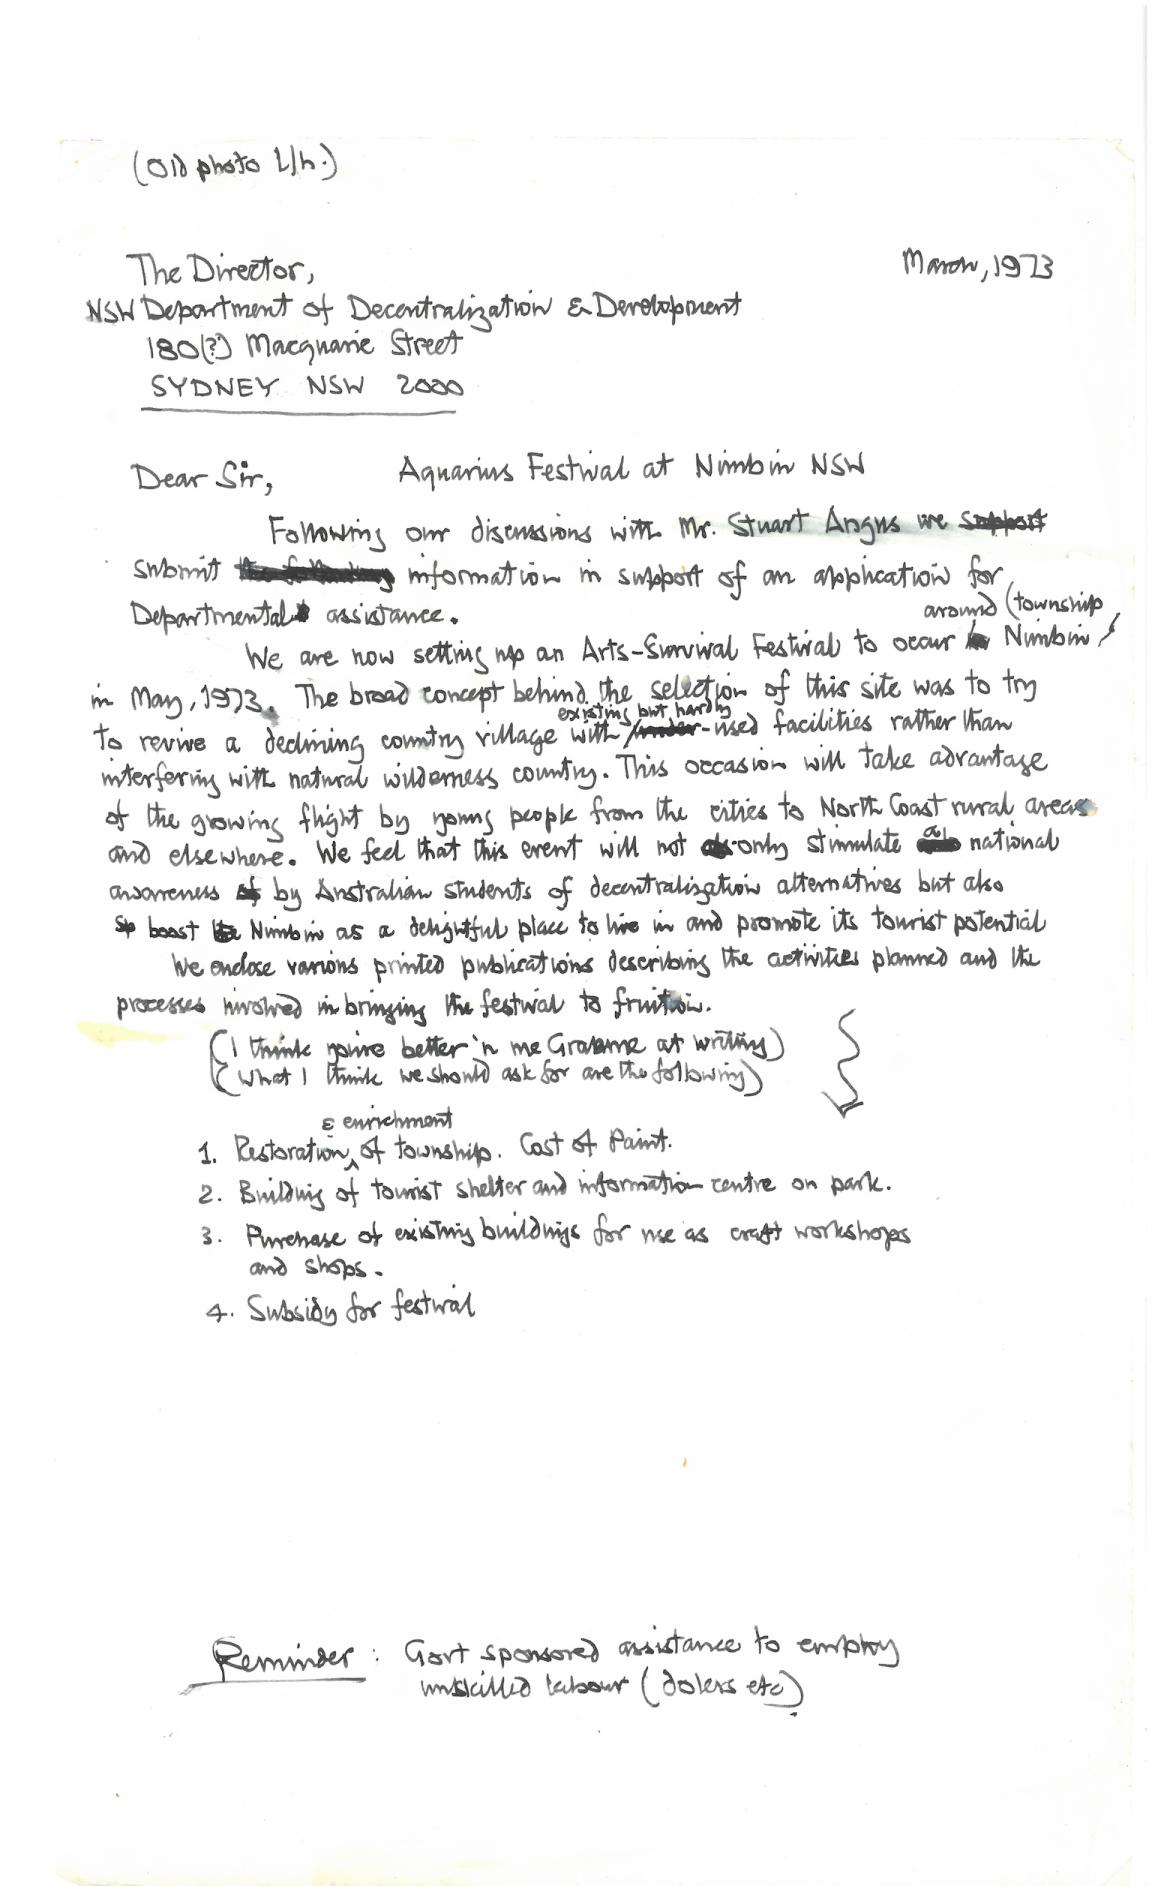 (Old photo L/h.)
March, 1973
The Director,
NSW Department of Decentralization & Development
180(?) Macquarie Street
SYDNEY NSW 2000
Dear Sir, Aquarius Festival at Nimbin NSW
Following our discussions with Mr. Stuart Angus we support
submit the following information in support of an application for
Departmental assistance.
around (township
We are now setting up an Arts-Survival Festival to occur in Nimbin
in May, 1973. The broad concept behind the selection of this site was to try
existing but hardly
to revive a declining country village with under-used facilities rather than
interfering with natural wilderness country. This occasion will take advantage
of the growing flight by young people from the cities to North Coast rural areas
and elsewhere. We feel that this event will not only stimulate a national
awareness of by Australian students of decentralization alternatives but also
boost Nimbin as a delightful place to live in and promote its tourist potential
We enclose various printed publications describing the activities planned and the
processes involved in bringing the festival to fruition.
(I think you're better 'n me Graeme at writing)
(What I think we should ask for are the following)
& enrichment
1. Restoration ^ of township. Cost of Paint.
2. Building of tourist shelter and information centre on park.
3. Purchase of existing buildings for use as craft workshops
and shops.
4. Subsidy for festival
Reminder: Govt sponsored assistance to employ
unskilled labour (dolers etc).